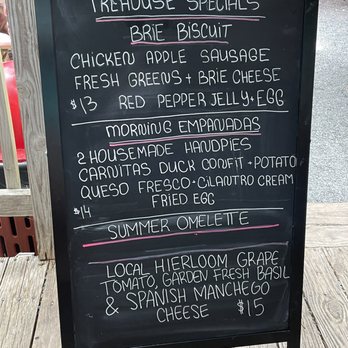 TREHOUSE SPECIALS
BRIE BISCUIT
CHICKEN APPLE SAUSAGE
FRESH GREENS + BRIE CHEESE
$13 RED PEPPER JELLY + EGG
MORNING EMPANADAS
2 HOUSEMADE HANDPIES
CARNITAS DUCK CONFIT + POTATO
QUESO FRESCO · CILANTRO CREAM
FRIED EGG
$14
SUMMER OMELETTE
LOCAL HIERLOOM GRAPE
TOMATO, GARDEN FRESH BASIL
& SPANISH MANCHEGO
CHEESE $15